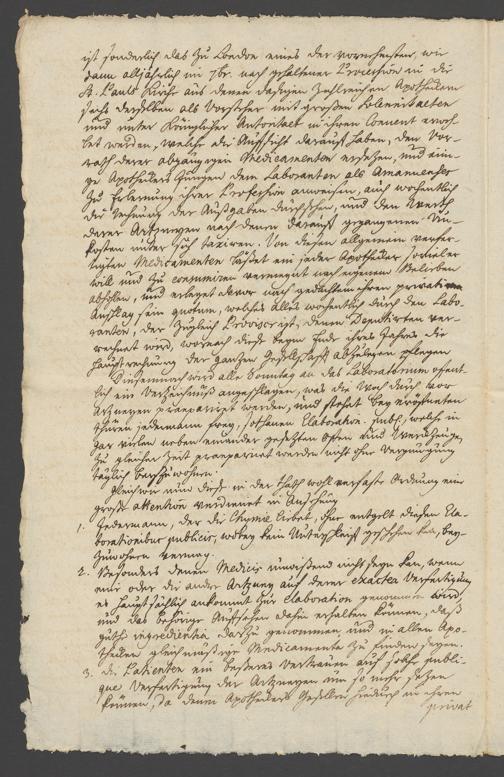 ist sonderlich das zu London eines der vornehmsten, wie
dann alljährlich im 7br. nach gehaltener Procession in die
St. Pauls Kirch aus denen dasigen zahlreichen Apotheckern
sechs derselben als Vorsteher mit großen Solennitaeten
und unter Königlicher Autoritaet in ihrem Convent erweh-
let werden, welche die Aufsicht darauf haben, den Vor-
rath derer abgängigen Medicamenten ersetzen, und eini-
ge Apotheckers Jungen dem Laboranten als Amanuenses
zu Erlernung ihrer Profession anweisen, auch wochentlich
die Rechnung der Ausgaben durchsehen, und den Werth
derer Artzneyen nach denen darauf gegangenen Un-
kosten unter sich taxiren. Von diesen allgemein verfer-
tigten Medicamenten lässet ein jeder Apothecker so viel er
will und zu consumiren vermag nach eigenem Belieben
abholen, und erleget davor nach gedachtem ihren privatim
Anschlag sein quotum, welches alles wochentlich durch den Labo-
ranten, der zugleich Provisor ist, denen Deputirten ver-
rechnet wird, wornach diese beym Ende ihres Jahres die
Hauptrechnung der ganzen Gesellschafft abzulegen pflegen.
wird alle Sonntag an das Laboratorium öffent-
lich ein Verzeichniß angeschlagen, was die Woch durch vor
Artzneyen praepariret werden, und stehet bey eröffneten
Thüren jedermann frey, sothanen Elaboration. publ., welche in
gar vielen neben einander gesetzten Öfen und Werckzeuge,
zu gleicher Zeit praepariret werden nicht ohne Vergnügung
täglich beyzuwohnen.
Gleichwie nun diese in der That wohl verfaste Ordnung eine
große attention verdienet in Ansehung
1. Jedermann, der die Chymie liebet, ohne entgelt diesen Ela-
borationibus publicis, wobey kein Unterschleiff geschehen kan, bey-
zuwohnen vermag.
2. Besonders denen Medicis unwißend nicht seyn kan, wann
eine oder die andere Artzney auf derer exactea Verfertigung
es hauptsächlich ankommt zur Elaboration genommen wird,
und das behörige Aufsehen dahin erhalten können, daß
gute ingredientia darzu genommen, und in allen Apo-
thecken gleichmäßige Medicamente zu finden seyen.
3. die Patienten ein besseres Vertrauen auf solche publi-
que Verfertigung der Artzneyen um so mehr setzen
können, da denen Apotheckers Gesellen hiedurch in ihren
privat